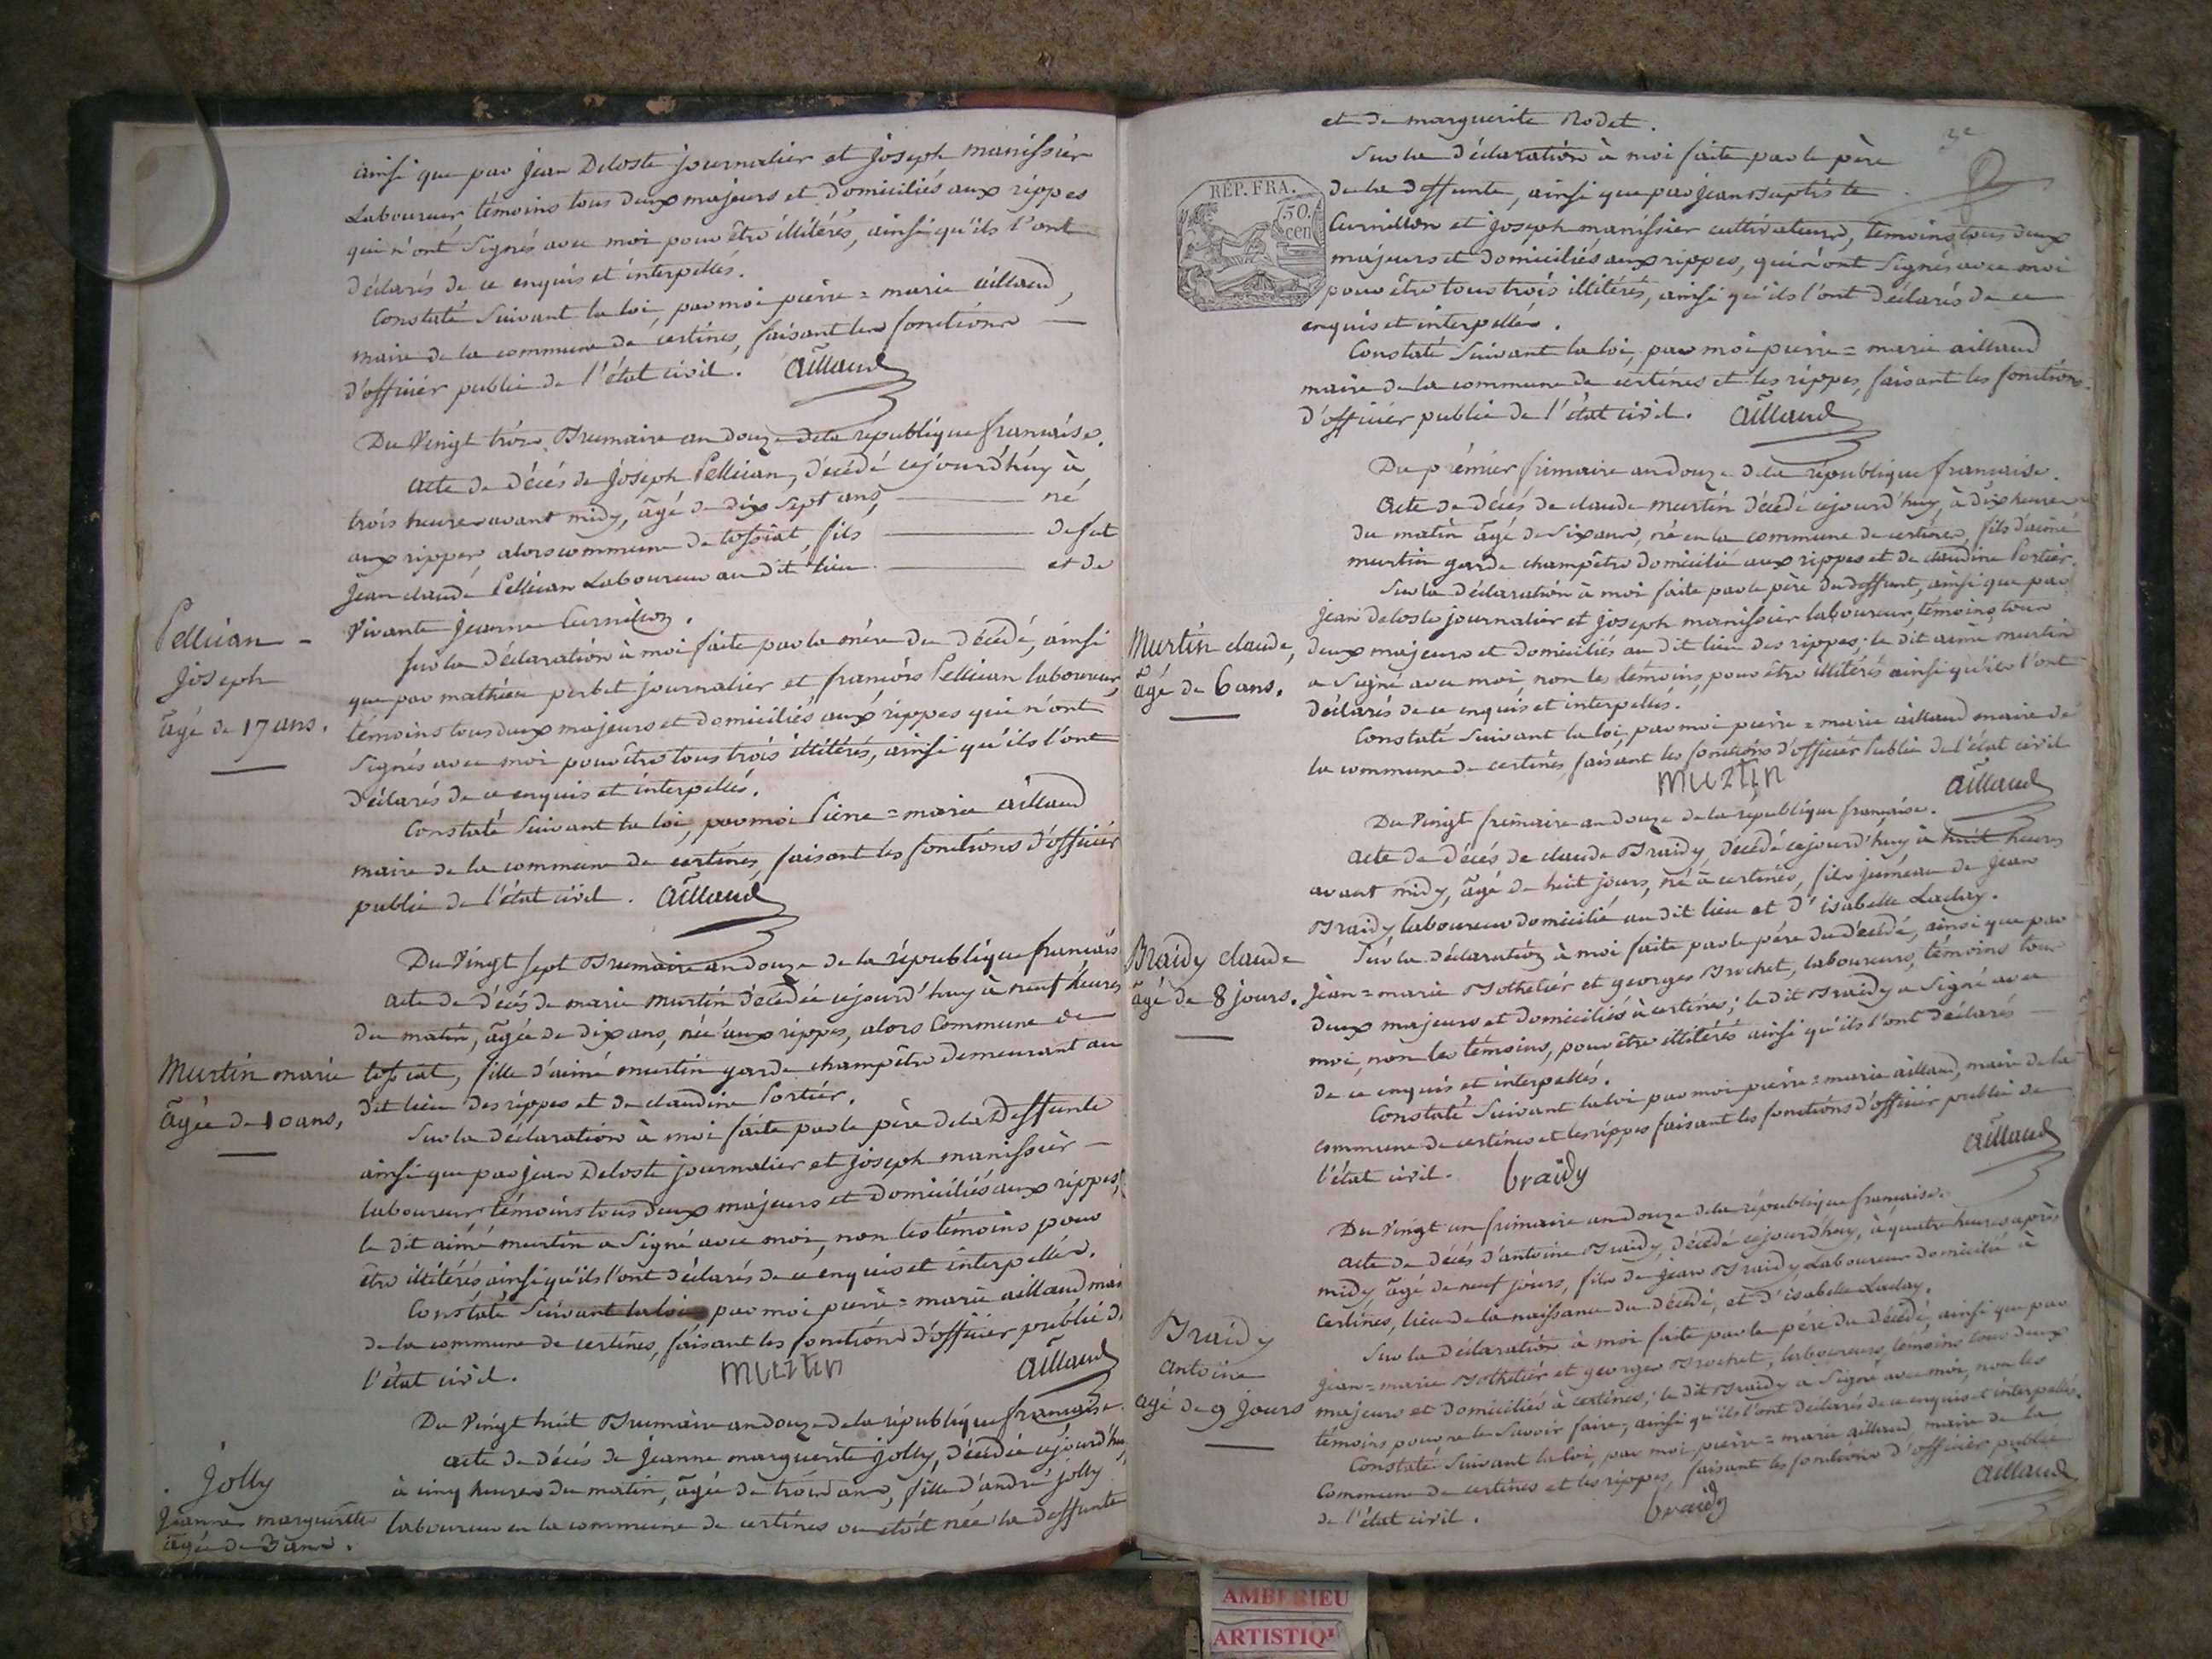 ainsi que par jean Deloste journalier et joseph manissier
Laboureur, témoins tous deux majeurs et domiciliés aux rippes
qui n'ont signés avec moi pour être illitérés, ainsi qu'ils l'ont
déclarés de ce enquis et interpellés.
Constaté suivant la loi, par moi pierre = marie aillaud,
maire de la commune de certines, faisant les fonctions
d'officier public de l'état civil. aillaud
Du Vingt trois Brumaire an douze de la république française.
acte de décès de joseph Pellician, décédé cejourd'huy à
trois heures avant midy, âgé de dix sept ans, né
aux rippes, alors commune de tossiat, fils de fut
Jean claude Pellician Laboureur au dit lieu et de
Vivante jeanne Curnillon.
Pellician
joseph
âgé de 17 ans.
sur la déclaration à moi faite par la mère du décédé, ainsi
que par mathieu perbet journalier et françois Pellician laboureur,
témoins tous deux majeurs et domiciliés aux rippes qui n'ont
signés avec moi pour être tous trois illitérés, ainsi qu'ils l'ont
déclarés de ce enquis et interpellés.
Constaté suivant la loi, par moi Pierre = marie aillaud
maire de la commune de certines, faisant les fonctions d'officier
public de l'état civil. aillaud
Du Vingt sept Brumaire an douze de la république français
acte de décès de marie murtin décédée cejourd'huy à neuf heures
du matin, âgée de dix ans, née aux rippes, alors Commune de
Murtin marie
âgée de 10 ans,
tossiat, fille d'aimé murtin garde champêtre demeurant au
dit lieu des rippes et de claudine Portier.
Sur la déclaration à moi faite par le père de la Deffunte
ainsi que par jean Deloste journalier et joseph manissier
laboureur témoins tous deux majeurs et domiciliés aux rippes,
le dit aimé murtin a signé avec moi, non les témoins pour
être illitérés, ainsi qu'ils l'ont déclarés de ce enquis et interpellés.
Constaté suivant la loi par moi pierre = marie aillaud mai
de la commune de certines, faisant les fonctions d'officier public d
l'état civil. murtin aillaud
Du Vingt huit Brumaire an douze de la république française.
acte de décès de jeanne marguerite jolly, décédée cejourd'hu
à cinq heures du matin, âgée de trois ans, fille d'andré jolly
laboureur en la commune de certines ou étoit née la deffunte
Jolly
Jeanne marguerite
âgée de 3 ans.
et de marguerite Rodet.
3e
Sur la déclaration à moi faite par le père
RÉP. FRA.
50.
cen
de la deffunte, ainsi que par jean Baptiste
Curnillon et joseph manissier cultivateurs, témoins tous deux
majeurs et domiciliés aux rippes, qui n'ont signés avec moi
pour être tous trois illitérés, ainsi qu'ils l'ont déclarés de ce
enquis et interpellés.
Constaté suivant la loi, par moi pierre = marie aillaud
maire de la commune de certines et les rippes, faisant les fonctions
d'officier public de l'état civil. aillaud
Du prémier frimaire an douze de la république française.
Acte de décès de claude murtin décédé cejourd'huy, à dix heures
du matin âgé de six ans, né en la commune de certines, fils d'aimé
murtin garde champêtre domicilié aux rippes et de claudine Portier.
Sur la déclaration à moi faite par le père du deffunt, ainsi que par
jean deloste journalier et joseph manissier laboureur, témoins tous
Murtin claude,
âgé de 6 ans.
deux majeurs et domiciliés au dit lieu des rippes; le dit aimé murtin
a signé avec moi, non les témoins, pour être illitérés ainsi qu'ils l'ont
déclarés de ce enquis et interpellés.
Constaté suivant la loi, par moi pierre = marie aillaud maire de
la commune de certines, faisant les fonctions d'officier Public de l'état civil
murtin aillaud
Du Vingt frimaire an douze de la république française.
acte de décès de claude Braidy, décédé cejourd'huy à huit heures
avant midy, âgé de huit jours, né à certines, fils juméau de Jean
Braidy laboureur domicilié au dit lieu et d'isabelle Laclay.
Braidy claude
âgé de 8 jours.
Sur la déclaration à moi faite par le père du décédé, ainsi que par
jean = marie Bothetier et georges Brochet, laboureurs, témoins tous
deux majeurs et domiciliés à certines; le dit Braidy a signé avec
moi, non les témoins, pour être illitérés ainsi qu'ils l'ont déclarés
de ce enquis et interpellés.
Constaté suivant la loi par moi pierre = marie aillaud, maire de la
commune de certines et les rippes faisant les fonctions d'officier public de
l'état civil. braidy aillaud
Du Vingt un frimaire an douze de la république française.
acte de décès d'antoine Braidy, décédé cejourd'huy, à quatre heures après
midy âgé de neuf jours, fils de jean Braidy Laboureur domicilié à
Certines, lieu de la naissance du décédé, et d'isabelle Laclay.
Braidy
antoine
agé de 9 jours
Sur la déclaration à moi faite par le père du décédé, ainsi que par
jean = marie Bothetier et georges Brochet, laboureurs, témoins tous deux
majeurs et domiciliés à certines; le dit Braidy a signé avec moi, non les
témoins pour ne le savoir faire, ainsi qu'ils l'ont déclarés de ce enquis et interpellés.
Constaté suivant la loi, par moi pierre = marie aillaud, maire de la
Commune de certines et les rippes, faisant les fonctions d'officier public
de l'état civil. braidy aillaud
AMBERIEU
ARTISTIQU